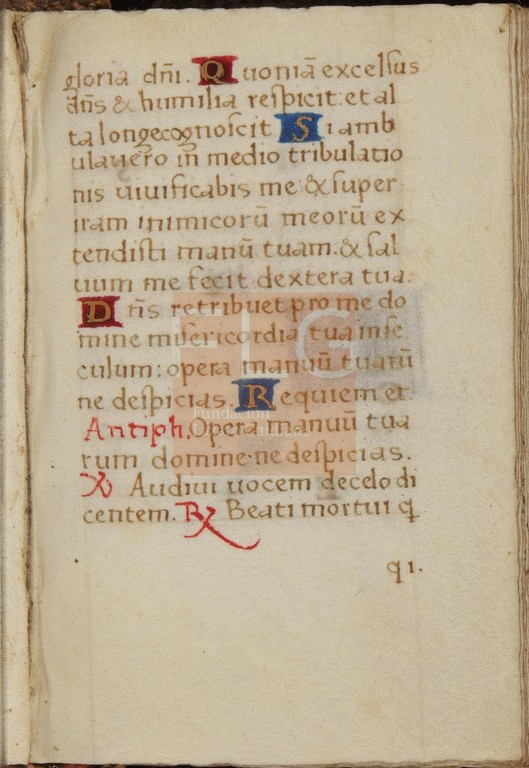 gloria dñi. Quoniã excelsus
dñs & humilia respicit: et al
ta longe cognoscit Si amb
ulauero in medio tribulatio
nis uiuificabis me: & super
iram inimicorũ meorũ ex
tendisti manũ tuam. & sal
uum me fecit dextera tua.
Dñs retribuet pro me do
mine misericordia tua in se
culum: opera manuũ tuarũ
ne despicias. Requiem et.
Antiph. Opera manuũ tua
rum domine ne despicias.
℣ Audiui uocem de celo di
centem. ℟ Beati mortui q̃
q i.
FLG
Fundación